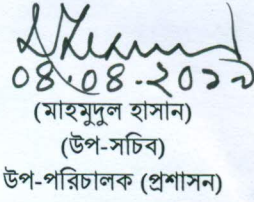 ০৪.০৪.২০১৯
(মাহমুদুল হাসান)
(উপ-সচিব)
উপ-পরিচালক (প্রশাসন)